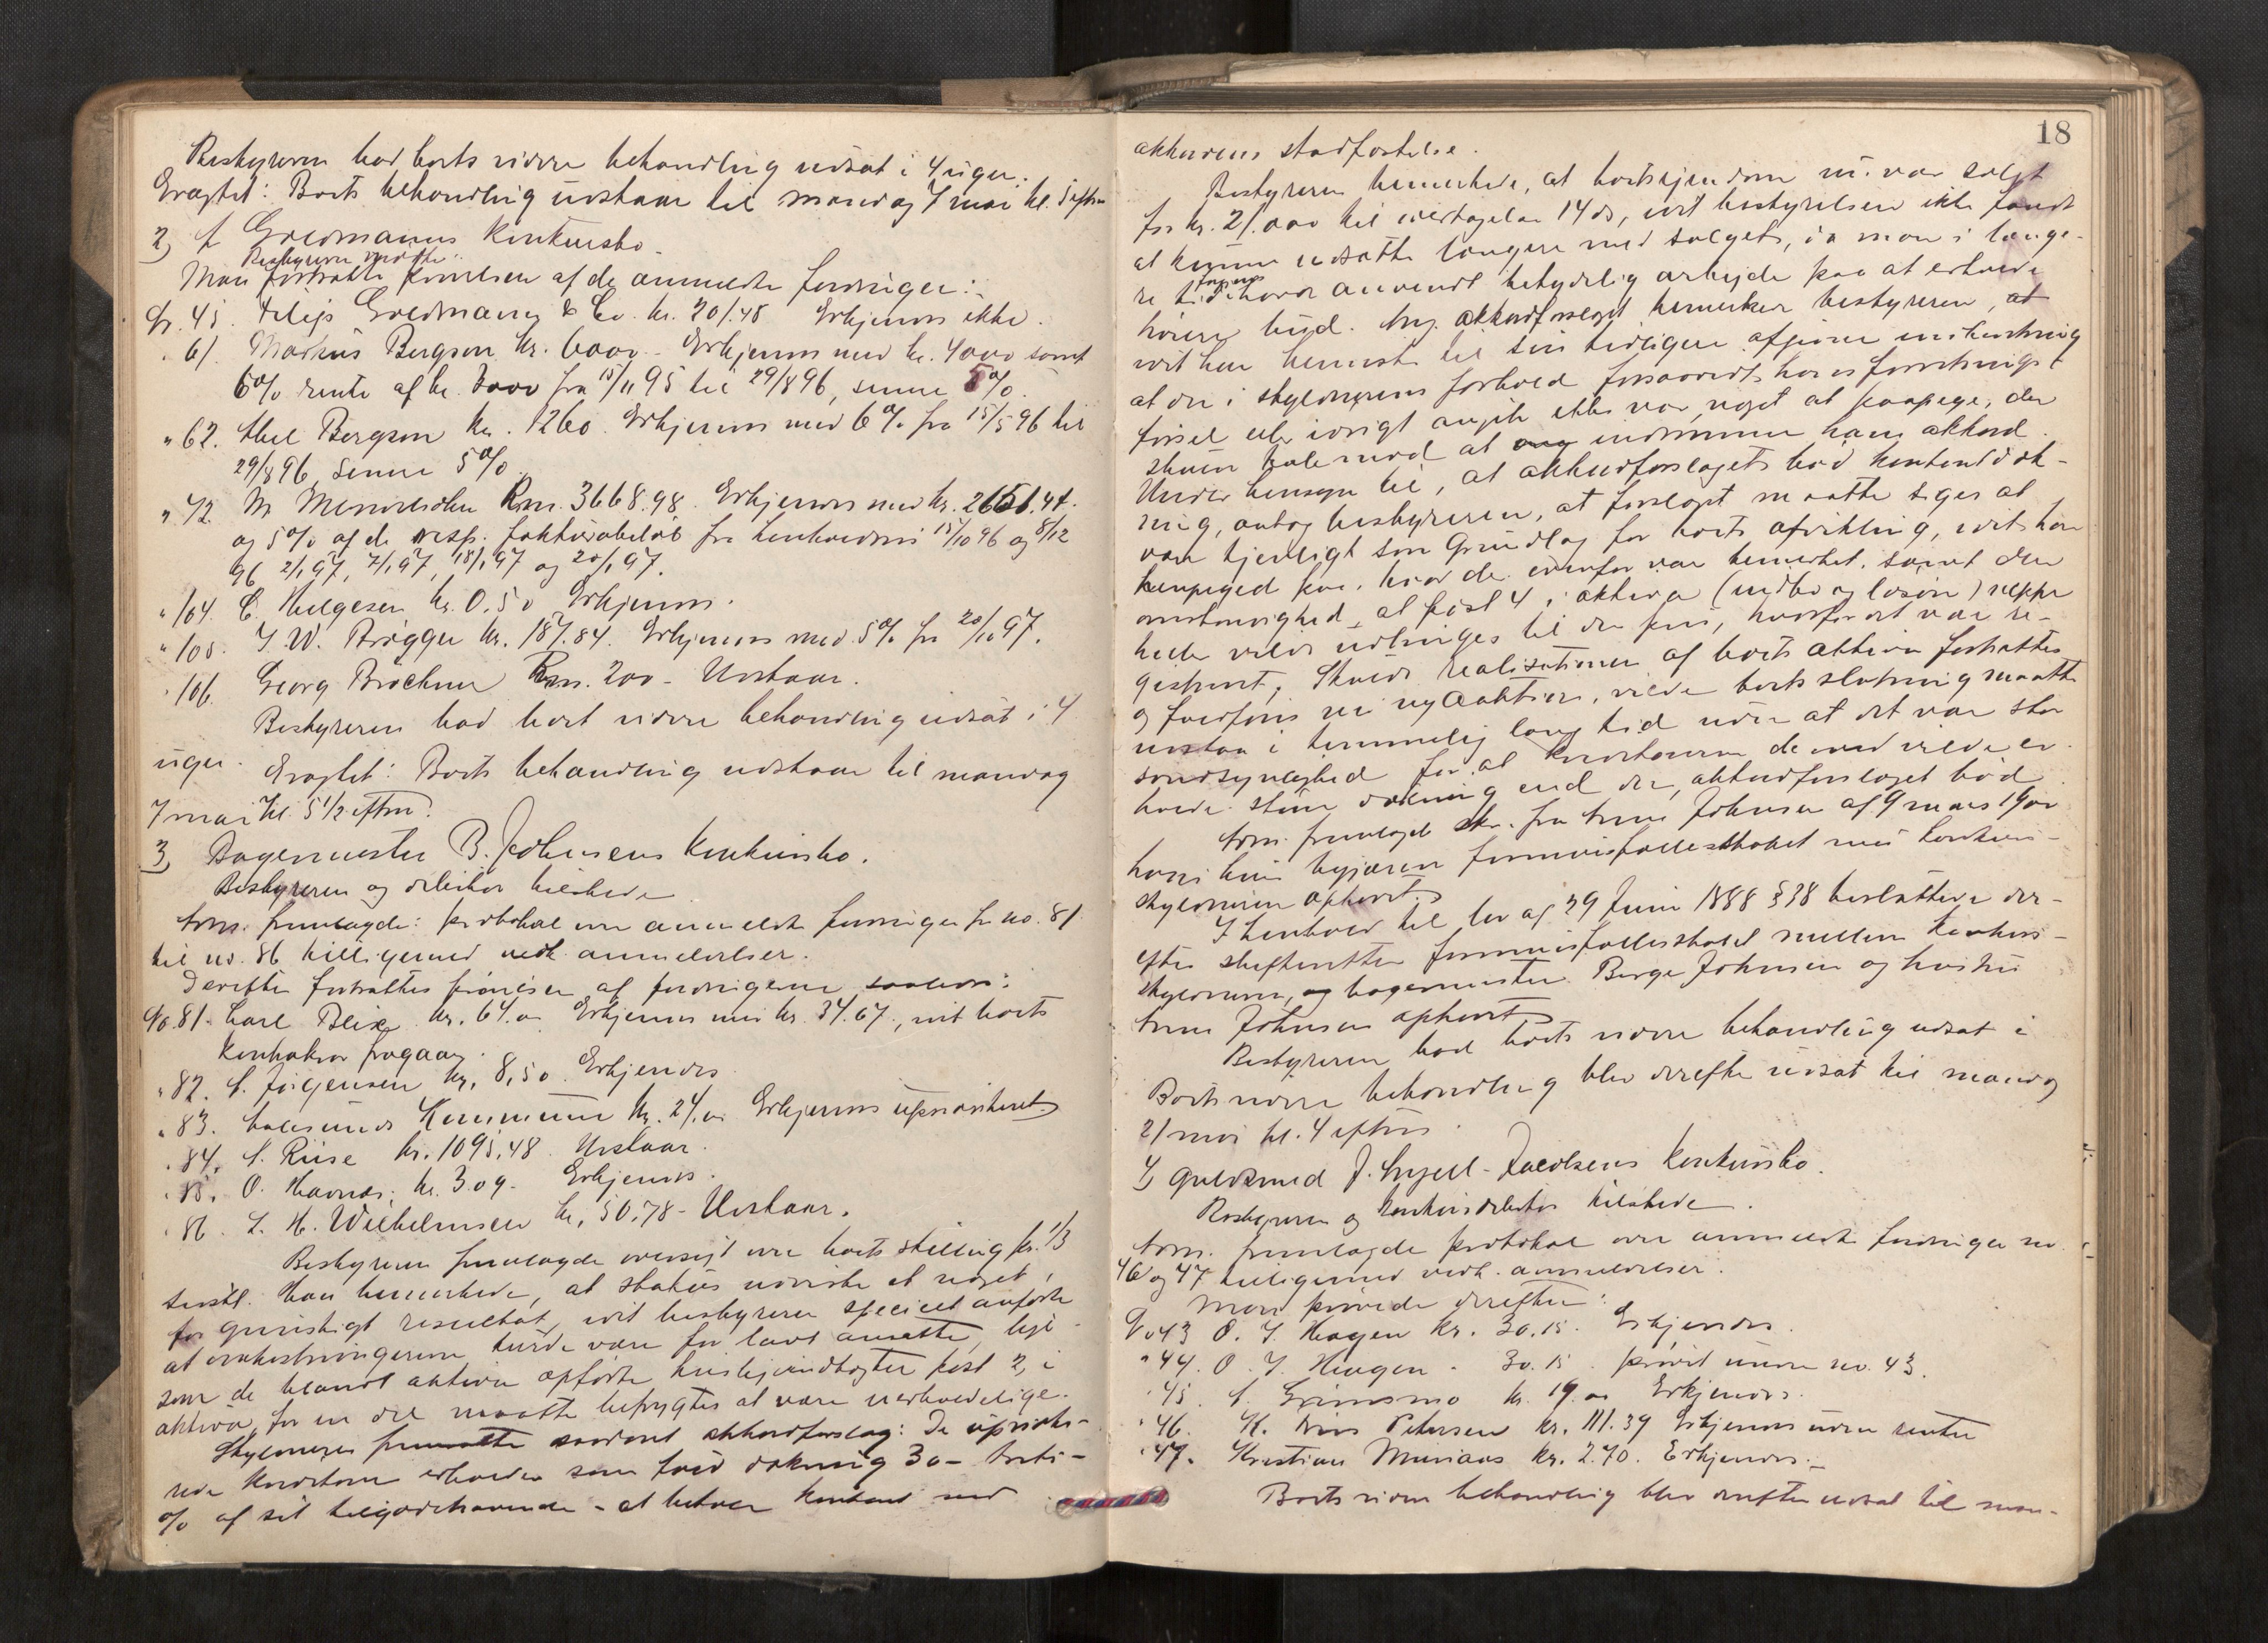 Bestyreren bad boets videre behandling udsat i 4 uger.
Eragtet: Boets behandling udstaar til mandag 7 mai kl. 5 eftm
2) A Goldmanns konkursbo.
Bestyreren mødte.
Man fortsatte prøvelsen af de anmeldte fordringer:
No. 45. Goldmann & Co. kr. 201.48 Erkjendes ikke.
" 61. Markus Bergson kr. 6000 - Erkjendes med kr. 4000 samt
6% rente af kr. 3000 fra 15/11 95 til 29/8 96, senere 5%.
" 62. Abel Bergson kr. 1260. Erkjendes med 6% fra 15/5 96 til
29/8 96, senere 5%.
" 72. M Mendelsohn Rm. 3668.98. Erkjendes med kr. 2651.44.
og 5% af de resp. fakturabeløb fra henholdsvis 15/10 96 og 8/12
96, 2/1 97, 7/1 97, 18/1 97 og 20/1 97.
" 104. C. Helgesen kr. 0.50 Erkjendes.
" 105. J. W. Brøgger kr. 187.84. Erkjendes med 5% fra 20/10 97.
" 106. Georg Bröchner Rm. 200 - Udstaar.
Bestyreren bad boets videre behandling udsat i 4
uger.
Eragtet: Boets behandling udstaar til mandag
7 mai kl. 5 1/2 eftm.
3) Bagermester B. Johnsens konkursbo.
Bestyreren og debitor tilstede
Adm. fremlagde: protokol over anmeldte fordringer fra no. 81
til no. 86 tilligemed vedk. anmeldelser.
Derefter fortsattes prøvelsen af fordringerne saaledes:
No. 81. Carl Blix kr. 64.00 Erkjendes med kr. 34.67, idet boets
kontrakrav fragaar.
" 82. A. Jørgensen kr. 8,50. Erkjendes
" 83. Aalesunds Kommune kr. 24.00 Erkjendes uprioriteret.
" 84. A. Riise kr. 1095,48. Udstaar.
" 85. O. Havnæs. kr. 3.09. Erkjendes.
" 86. L. H. Wilhelmsen kr. 50.78 - Udstaar.
Bestyreren fremlagde oversigt over boets stilling pr. 1/3
sidstl. Han bemerkede, at status udviste et noget
for gunstigt resultat, idet bestyreren specielt anførte
at omkostningerne turde være for lavt ansatte, lige-
som de blandt aktiva opførte husleieindtægter post 2, i
aktiva, for en del maatte befrygtes at være uerholdelige.
Skyldneren fremsatte saadant akkordforslag: De upriorite-
rede kreditorer erholder som fuld dækning 30 - tretti -
% af sit tilgodehavende - at betale kontant ved
18
akkordens stadfæstelse.
Bestyreren bemerkede, at boets ejendom nu var solgt
for kr. 21.000 til overtagelse 14 ds, idet bestyrelsen ikke fandt
at kunne udsætte længere med salget, da man i længe-
re tid forgjæves havde anvendt betydelig arbejde paa at erholde
høiere bud. Ang. akkordforslaget bemerker bestyreren, at
idet han henviste til sin tidligere afgivne indberetning
at der i skyldnerens forhold forsaavidt hans forretnings-
førsel eller øvrigt angik ikke var noget at paapege, der
skulde tale mod at indrømme ham akkord.
Under hensyn til, at akkordforslaget bød kontant dæk-
ning, antog bestyreren, at forslaget maatte siges at
være tjenligt som Grundlag for boets afvikling, idet han
henpegede paa, hvad der ovenfor var bemerket, samt den
omstændighed, at post 4 i aktiva (indbo og løsøre) neppe
heller vilde udbringes til den pris, hvorfor det var re-
gistreret. Skulde realisationen af boets aktiva fortsættes
og fordres ved ny auktion, vilde boets slutning maatte
udstaa i temmelig lang tid uden at det var stor
sandsynlighed for at kreditorerne dermed vilde er-
holde større dækning end den, akkordforslaget bød.
Adm. fremlagde skr. fra Anne Johnsen af 9 mars 1900
hvori hun begjærer formuesfællesskabet med konkurs-
skyldneren ophævet.
I henhold til lov af 29 Juni 1888 § 38 besluttede der-
efter skifteretten formuesfællesskabet mellem konkurs-
skyldneren, bagermester Berge Johnsen og hustru
Anne Johnsen ophævet
Bestyreren bad boets videre behandling udsat i
Boets videre behandling blev derefter udsat til mandag
21 mai kl. 4 eftm.
4) Guldsmed J. Engell-Jacobsens konkursbo.
Bestyreren og konkursdebitor tilstede.
Adm. fremlagde protokol over anmeldte fordringer no.
46 og 47 tilligemed vedk. anmeldelser.
Man prøvede derefter:
No 43 O. J. Hagen kr. 30.15. Erkjendes.
" 44. O. J. Haagen - 30.15. prøvet under no. 43.
" 45. A. Grimsmo kr. 19.00 Erkjendes.
" 46. K. Petersen kr. 111.39 Erkjendes uden renter
" 47. Kristian kr. 2.70. Erkjendes.
Boets videre behandling blev derefter udsat til man-